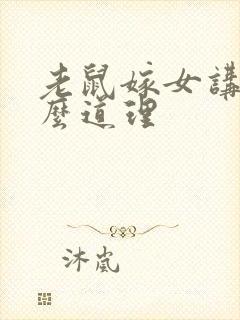 老鼠嫁女講
麼道理
沐嵐